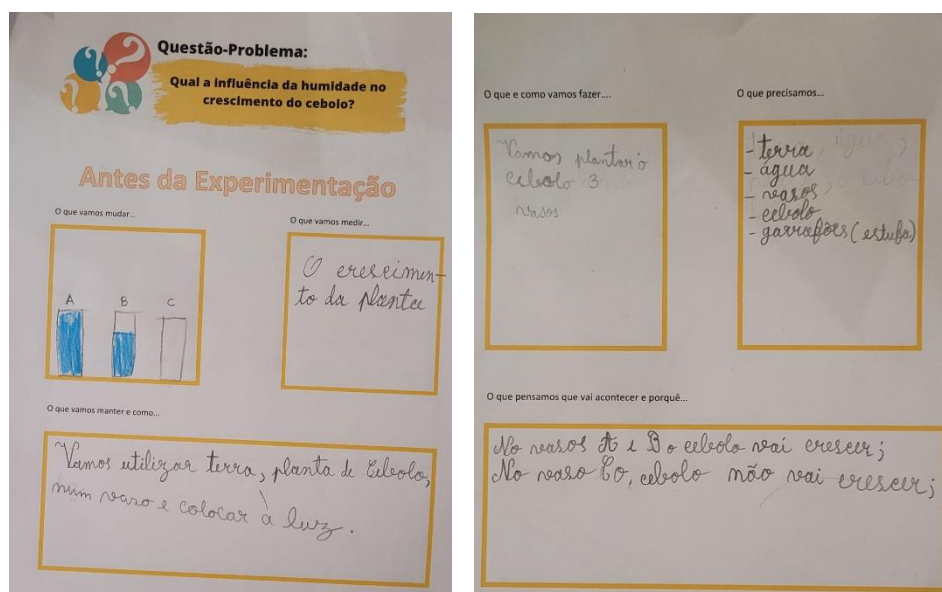 Questão-Problema:
Qual a influência da humidade no
crescimento do cebolo?
Antes da Experimentação
O que vamos mudar...
A B C
O que vamos medir...
O crescimen-
to da planta
O que vamos manter e como...
Vamos utilizar terra, planta de Cebolo,
num vaso e colocar à luz.
O que e como vamos fazer....
Vamos plantar o
cebolo 3
vasos
O que precisamos...
- terra
- água
- vasos
- cebolo
- garrafões (estufa)
O que pensamos que vai acontecer e porquê...
No vasos A e B o cebolo vai crescer;
No vaso Co, cebolo não vai crescer;